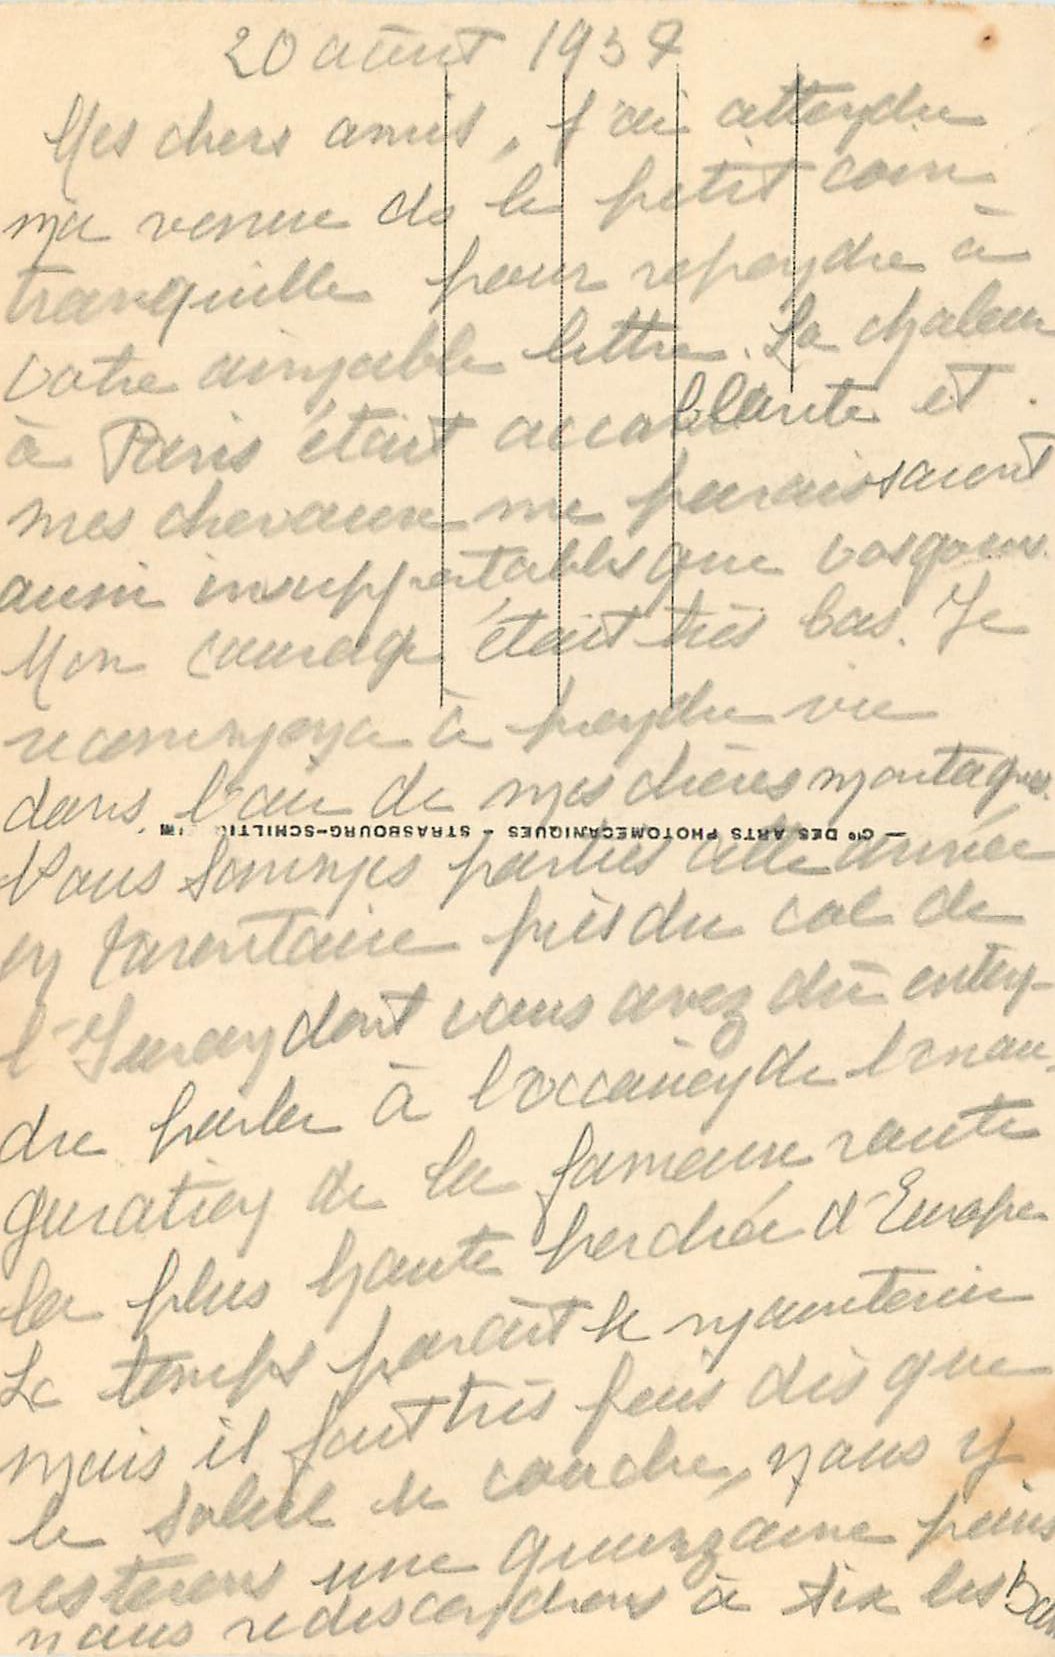 20 août 1937
Mes chers amis, j'ai attendu
ma venue ds le petit coin
tranquille pour repondre à
votre aimable lettre. La chaleur
à Paris était accablante et
mes chevaux me paraissaient
aussi insupportables que vos gours.
Mon courage était très bas. Je
recommence à prendre vie
dans l'air de mes chères montagnes.
Cie DES ARTS PHOTOMECANIQUES - STRASBOURG-SCHILTIGHEIM
Nous sommes parties cette année
en Tarentaise près du col de
l'Iseran dont vous avez dû enten-
dre parler à l'occasion de l'inau-
guration de la fameuse route
la plus haute perchée d'Europe
Le temps parait se maintenir
mais il fait très frais dès que
le soleil se couche, nous y
resterons une quinzaine puis
nous redescendrons à Aix les Bains